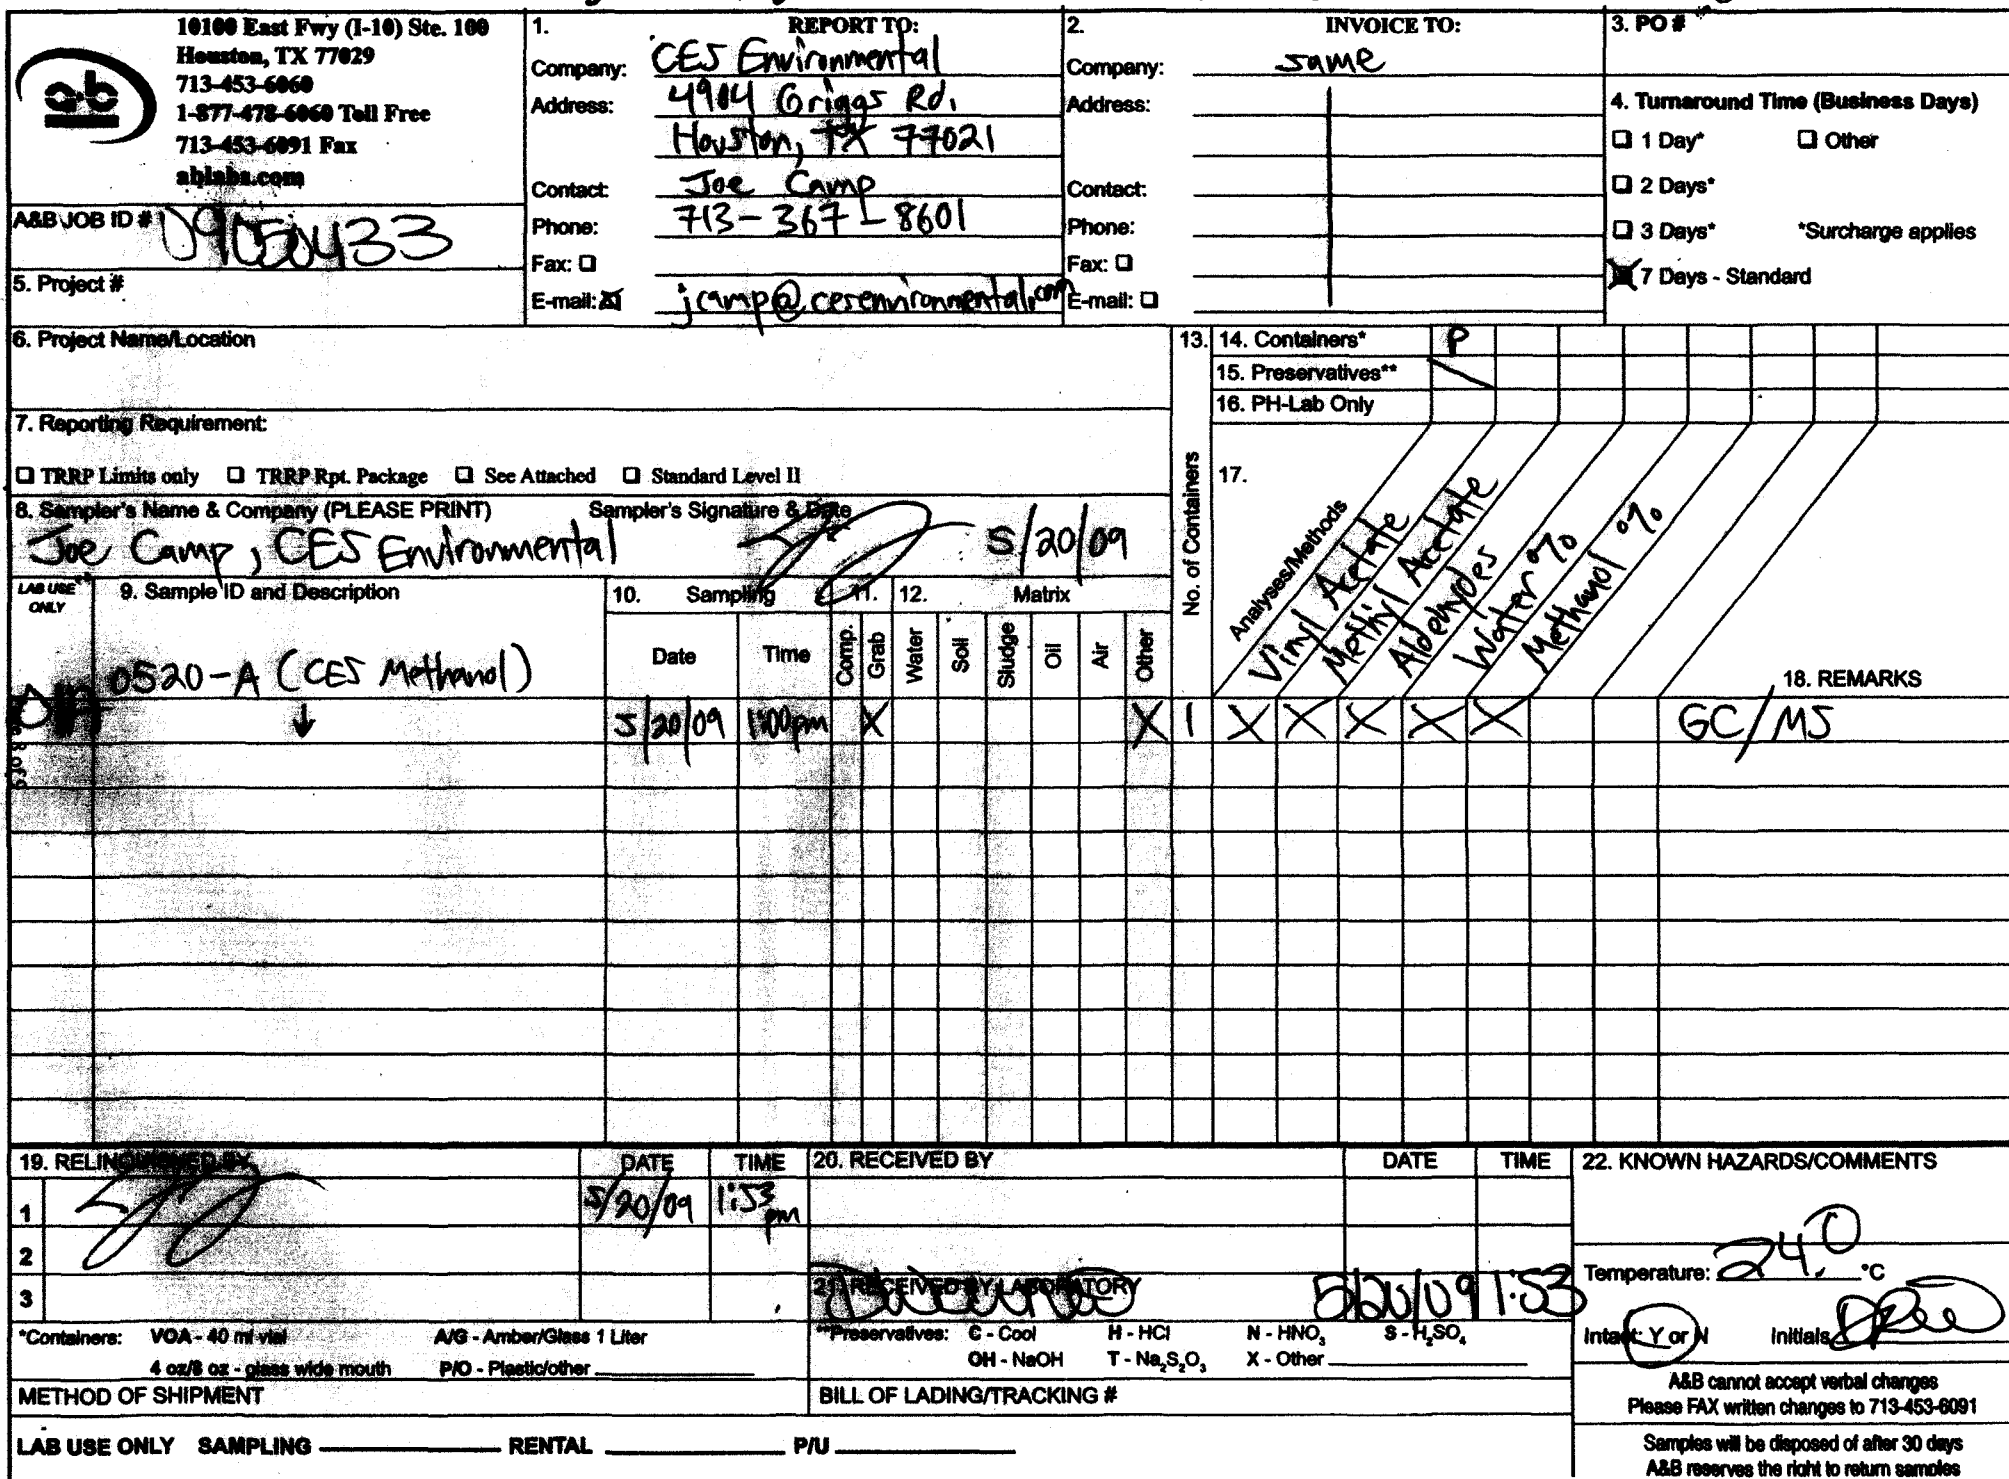 10100 East Fwy (I-10) Ste. 100
Houston, TX 77029
713-453-6060
1-877-478-6060 Toll Free
713-453-6091 Fax
ablabs.com
a&b
A&B JOB ID # 09050433
5. Project #
1. REPORT TO:
Company: CES Environmental
Address: 4904 Griggs Rd.
Houston, TX 77021
Contact: Joe Camp
Phone: 713-367-8601
Fax: ☐
E-mail: ☒ jcamp@cesenvironmental.com
2. INVOICE TO:
Company: same
Address:
Contact:
Phone:
Fax: ☐
E-mail: ☐
3. PO #
4. Turnaround Time (Business Days)
☐ 1 Day* ☐ Other
☐ 2 Days*
☐ 3 Days* *Surcharge applies
☒ 7 Days - Standard
6. Project Name/Location
7. Reporting Requirement:
☐ TRRP Limits only ☐ TRRP Rpt. Package ☐ See Attached ☐ Standard Level II
8. Sampler's Name & Company (PLEASE PRINT) Sampler's Signature & Date
Joe Camp, CES Environmental 5/20/09
13. No. of Containers
14. Containers* P
15. Preservatives**
16. PH-Lab Only
17. Analyses/Methods
Vinyl Acetate
Methyl Acetate
Aldehydes
Water %
Methanol %
18. REMARKS
LAB USE ONLY
9. Sample ID and Description
10. Sampling
Date Time
11. Comp. Grab
12. Matrix
Water Soil Sludge Oil Air Other
0520-A (CES Methanol)
01A ↓ 5/20/09 1:00pm X X 1 X X X X X GC/MS
19. RELINQUISHED BY DATE TIME
1 5/20/09 1:53 pm
2
3
20. RECEIVED BY DATE TIME
21. RECEIVED BY LABORATORY 5/20/09 1:53
22. KNOWN HAZARDS/COMMENTS
Temperature: 24.0 °C
Intact: Y or N Initials
*Containers: VOA - 40 ml vial A/G - Amber/Glass 1 Liter
4 oz/8 oz - glass wide mouth P/O - Plastic/other
**Preservatives: C - Cool H - HCl N - HNO₃ S - H₂SO₄
OH - NaOH T - Na₂S₂O₃ X - Other
METHOD OF SHIPMENT
BILL OF LADING/TRACKING #
A&B cannot accept verbal changes
Please FAX written changes to 713-453-6091
LAB USE ONLY SAMPLING RENTAL P/U
Samples will be disposed of after 30 days
A&B reserves the right to return samples